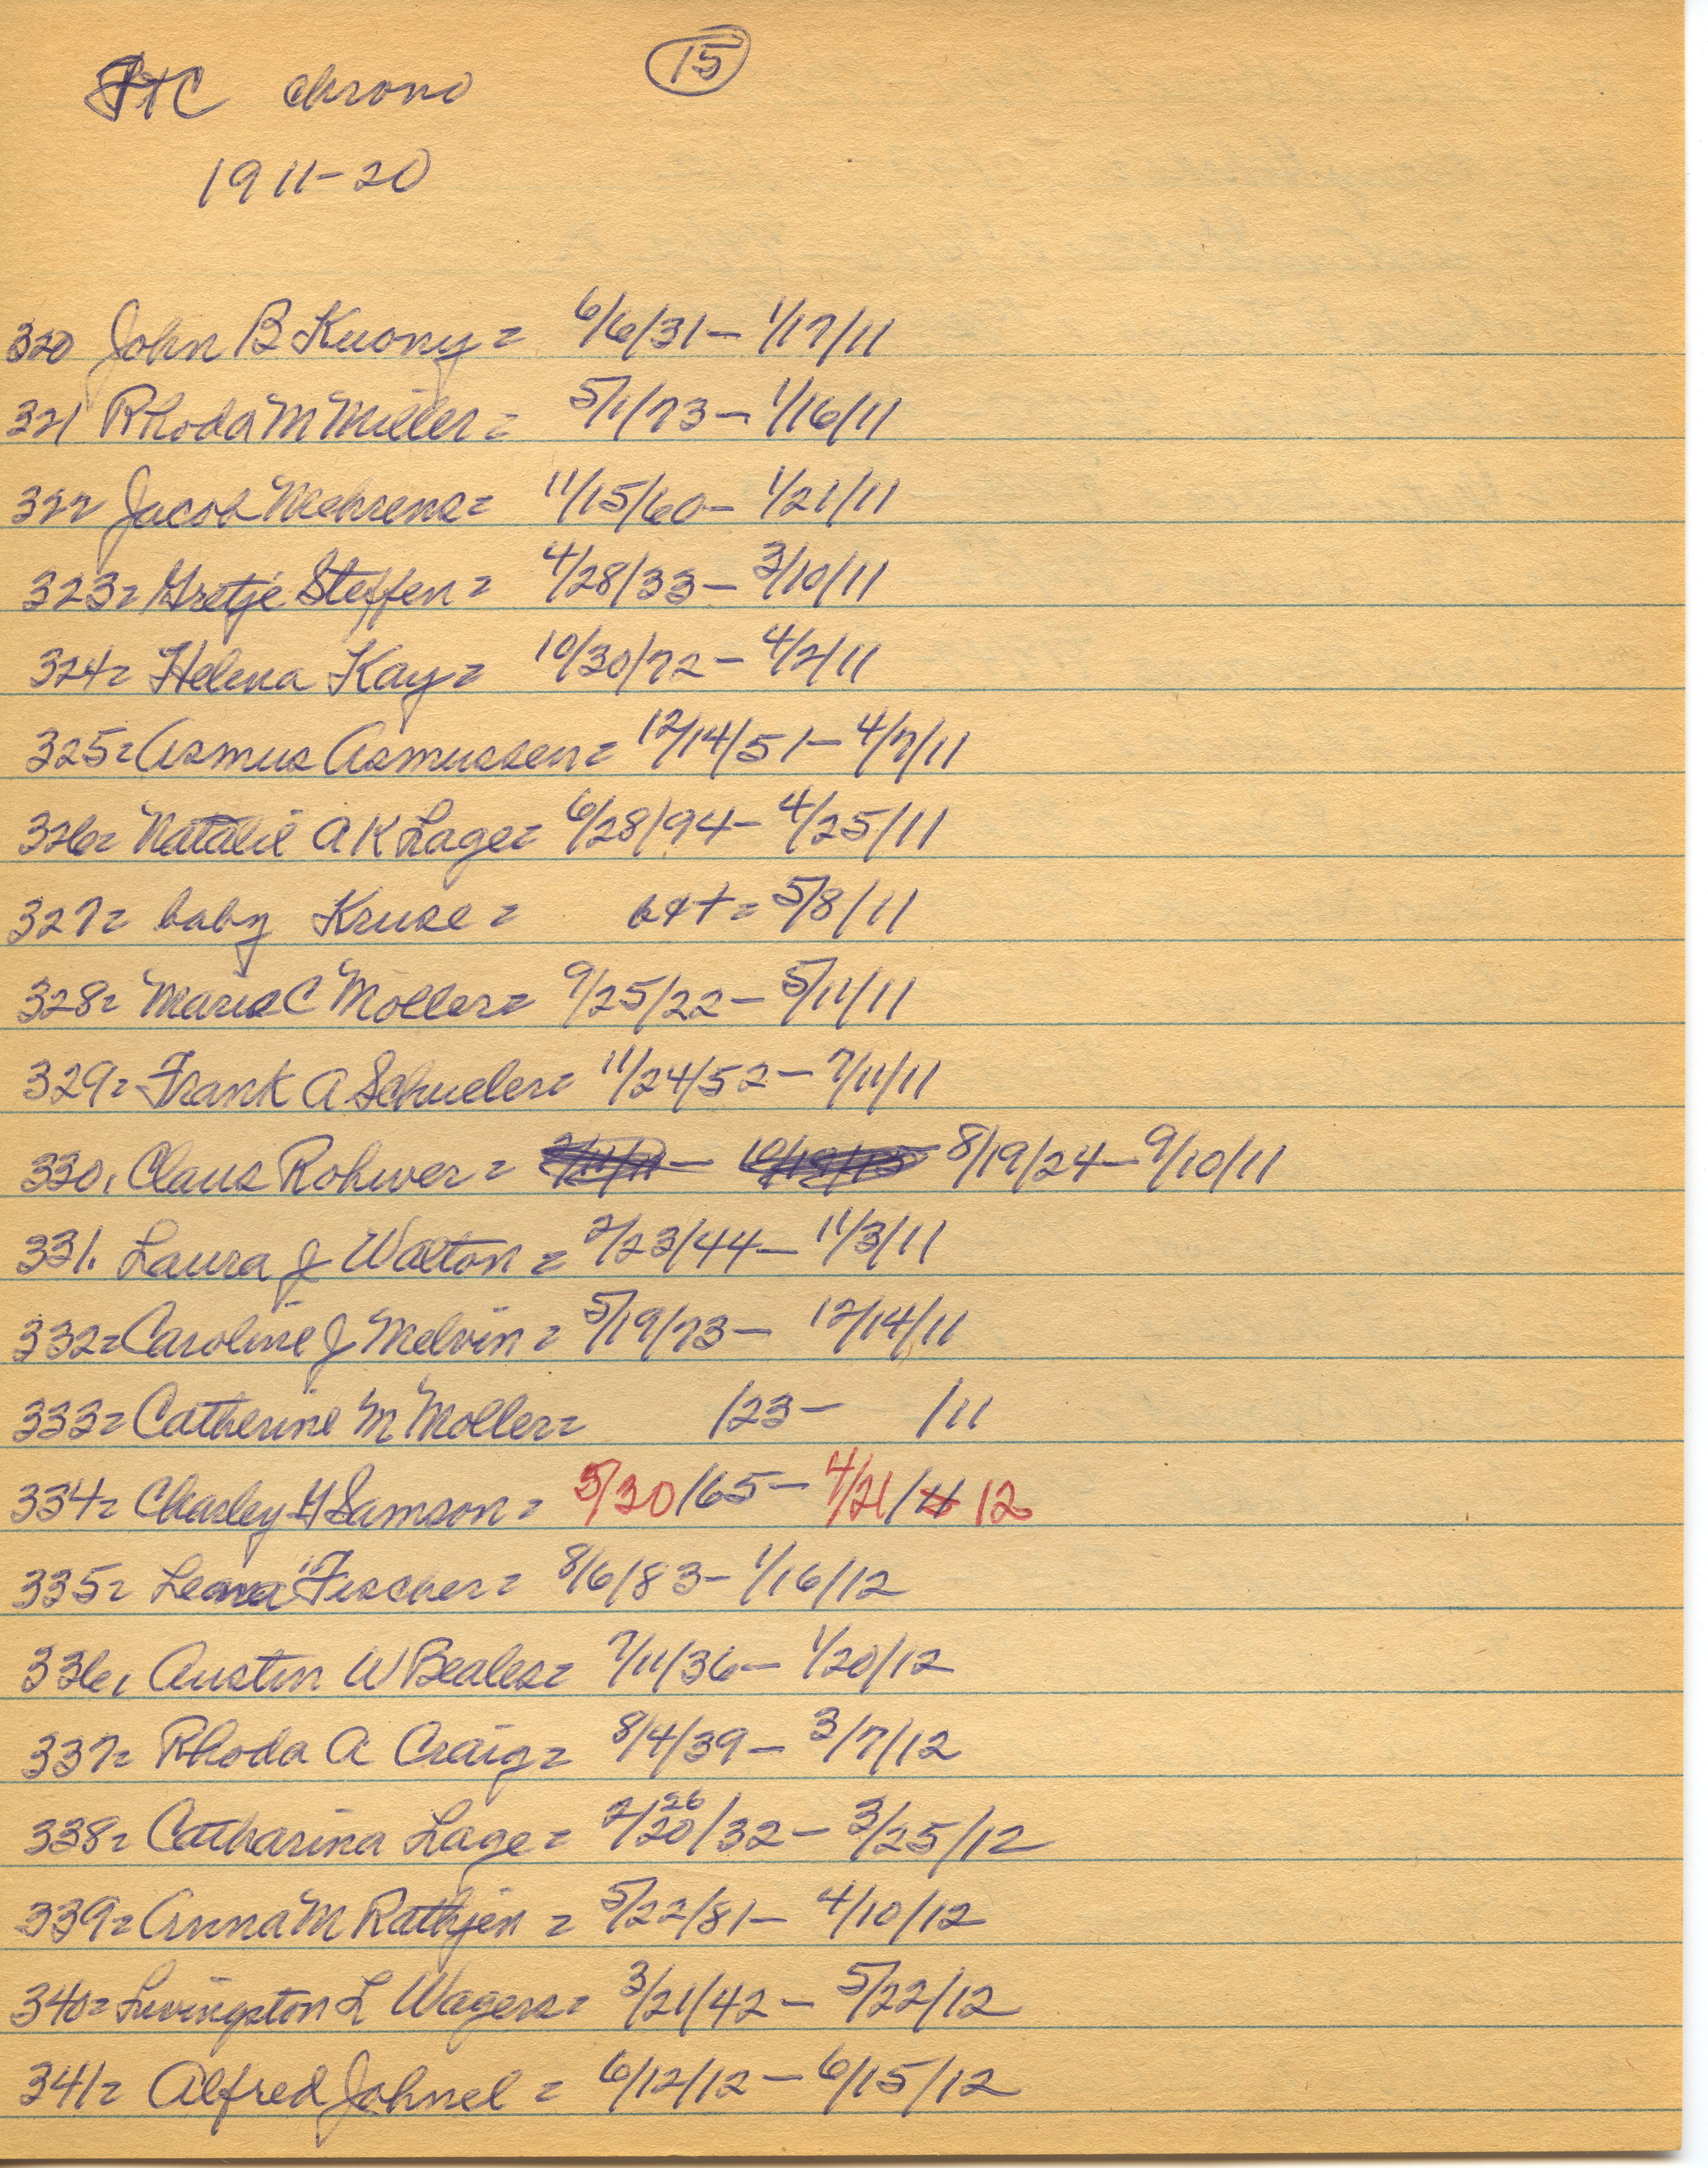 FTC chrono
15
1911-20
320 John B Kuony = 6/6/31 - 1/17/11
321 Rhoda M Miller = 5/1/73 - 1/16/11
322 Jacob Mehrens = 11/15/60 - 1/21/11
323 = Gretje Steffen = 4/28/33 - 3/10/11
324 = Helena Kay = 10/30/72 - 4/2/11
325 = Asmus Asmussen = 12/14/51 - 4/7/11
326 = Natalie A K Lage = 6/28/94 - 4/25/11
327 = baby Kruse = b&+ = 5/8/11
328 = Maria C Moller = 9/25/22 - 5/11/11
329 = Frank A Schueler = 11/24/52 - 7/11/11
330, Claus Rohwer = 8/19/24 - 9/10/11
331. Laura J Walton = 2/23/44 - 11/3/11
332 = Caroline J Melvin = 5/19/73 - 12/14/11
333 = Catherine M Moller = /23 - /11
334 = Charley G Samson = 5/30/65 - 4/21/11 12
335 = Lena Fischer = 8/6/83 - 1/16/12
336, Austin W Beales = 7/11/36 - 1/20/12
337 = Rhoda A Craig = 8/4/39 - 3/7/12
338 = Catharina Lage = 2/20 26/32 - 3/25/12
339 = Anna M Rathjen = 5/22/81 - 4/10/12
340 = Livingston L Wagers = 3/21/42 - 5/22/12
341 = Alfred Johnel = 6/12/12 - 6/15/12